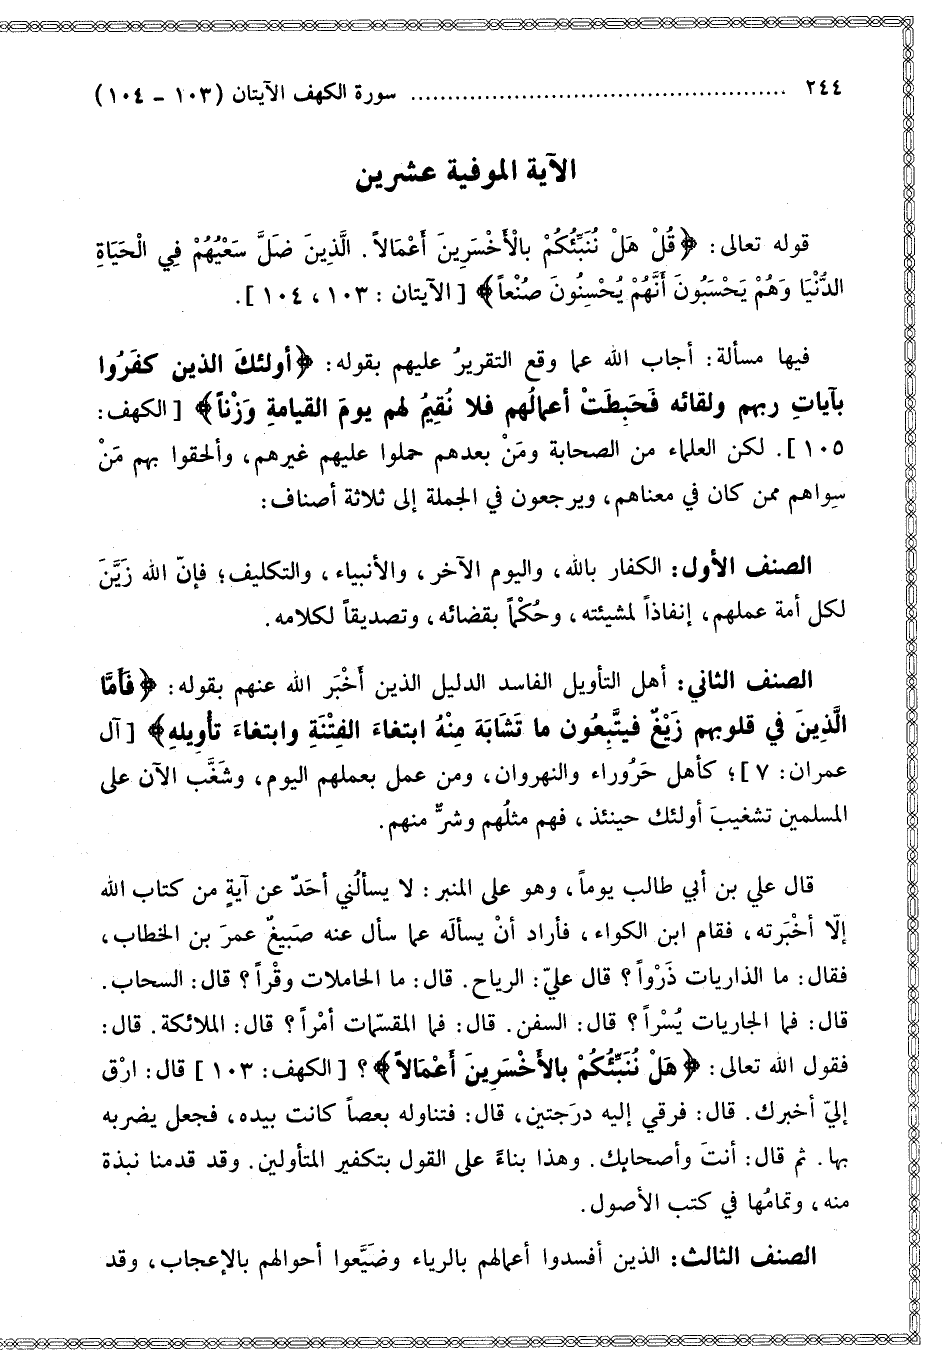 ٢٤٤ .................................................. سورة الكهف الآيتان (١٠٣ – ١٠٤)
الآية الموفية عشرين
قوله تعالى: ﴿قُلْ هَلْ نُنَبِّئُكُمْ بالْأَخْسَرِينَ أَعْمَالاً. الَّذِينَ ضَلَّ سَعْيُهُمْ فِي الْحَيَاةِ
الدُّنْيَا وَهُمْ يَحْسَبُونَ أَنَّهُمْ يُحْسِنُونَ صُنْعاً﴾ [الآيتان: ١٠٣، ١٠٤].
فيها مسألة: أجاب الله عما وقع التقريرُ عليهم بقوله: ﴿أولئكَ الذين كفَرُوا
بآياتِ ربهم ولقائه فَحَبِطَتْ أعمالُهم فلا نُقِيمُ لهم يومَ القيامةِ وَزْناً﴾ [الكهف:
١٠٥]. لكن العلماء من الصحابة ومَنْ بعدهم حملوا عليهم غيرهم، وألحقوا بهم مَنْ
سِواهم ممن كان في معناهم، ويرجعون في الجملة إلى ثلاثة أصناف:
الصنف الأول: الكفار بالله، واليوم الآخر، والأنبياء، والتكليف؛ فإنّ الله زَيَّنَ
لكل أمة عملهم، إنفاذاً لمشيئته، وحُكْماً بقضائه، وتصديقاً لكلامه.
الصنف الثاني: أهل التأويل الفاسد الدليل الذين أَخْبَر الله عنهم بقوله: ﴿فَأَمَّا
الَّذِينَ في قلوبهم زَيْغٌ فيتَّبِعُون ما تَشَابَهَ مِنْهُ ابتغاءَ الفِتْنَةِ وابتغاءَ تأوِيلهِ﴾ [آل
عمران: ٧]؛ كأهل حَرُوراء والنهروان، ومن عمل بعملهم اليوم، وشَغَّب الآن على
المسلمين تشغيبَ أولئك حينئذ، فهم مثلُهم وشرٌّ منهم.
قال علي بن أبي طالب يوماً، وهو على المنبر: لا يسألُني أحَدٌ عن آيةٍ من كتاب الله
إلّا أخْبَرته، فقام ابن الكواء، فأراد أنْ يسألَه عما سأل عنه صَبِيغٌ عمرَ بن الخطاب،
فقال: ما الذاريات ذَرْواً؟ قال عليّ: الرياح. قال: ما الحاملات وقْراً؟ قال: السحاب.
قال: فما الجاريات يُسْراً؟ قال: السفن. قال: فما المقسّمات أمْراً؟ قال: الملائكة. قال:
فقول الله تعالى: ﴿هَلْ نُنَبِّئُكُمْ بالأَخْسَرِينَ أَعْمَالاً﴾؟ [الكهف: ١٠٣] قال: ارْق
إليّ أخبرك. قال: فرقي إليه درَجتين، قال: فتناوله بعصاً كانت بيده، فجعل يضربه
بها. ثم قال: أنتَ وأصحابك. وهذا بناءً على القول بتكفير المتأولين. وقد قدمنا نبذة
منه، وتمامُها في كتب الأصول.
الصنف الثالث: الذين أفسدوا أعمالهم بالرياء وضيَّعوا أحوالهم بالإعجاب، وقد